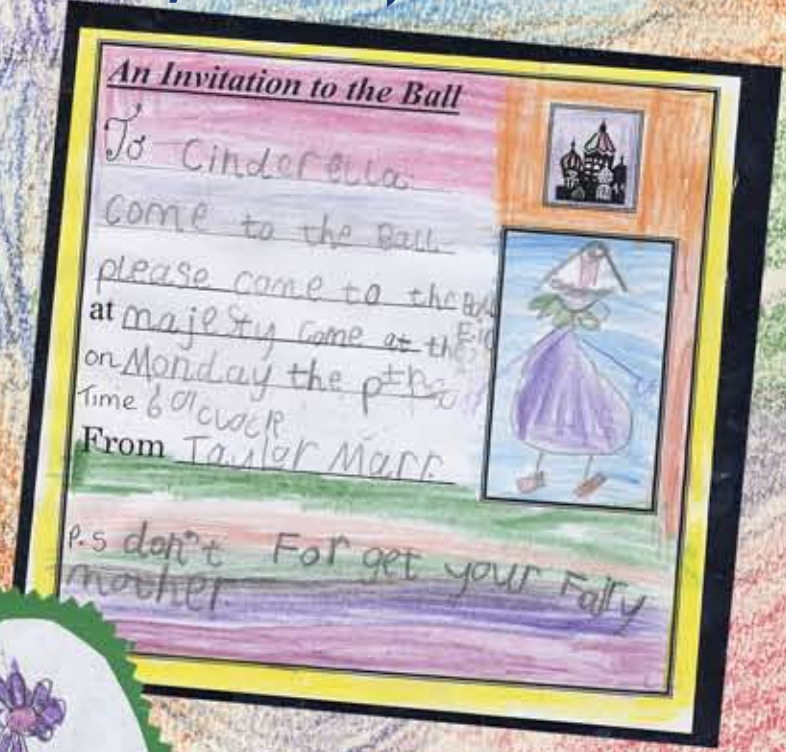 An Invitation to the Ball
To Cinderella
come to the Ball
please come to the Ball
at majesty come at the
on Monday the
Time 6 O'clock
From Taylor Marr
P.S don't For get your Fairy
mother.